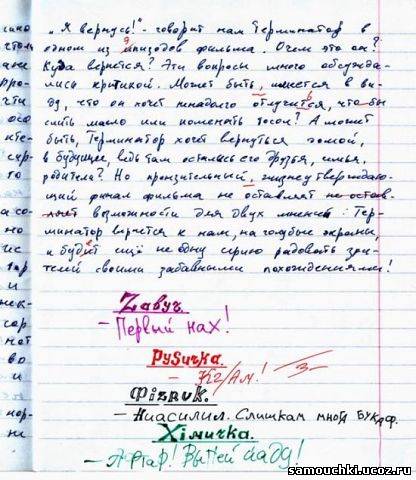 „Я вернусь!“ - говорит нам Терминатор в
одном из эпизодов фильма. О чем это он?
Куда вернется? Эти вопросы много обсужда-
лись критикой. Может быть, имеется в ви-
ду, что он хочет ненадолго отлучится, что-бы
сшить мыло или поменять носки? А может
быть, Терминатор хочет вернуться домой,
в будущее, ведь там остались его друзья, семья,
родители? Но пронзительный, жизнеутверждаю-
щий финал фильма не оставляет не остав-
ляет возможности для двух мнений: Тер-
минатор вернется к нам, на голубые экраны,
и будет ещё не одну серию радовать зри-
телей своими забавными похождениями!
Zавуч.
- Первый нах!
РуSичка.
- Кг/Ам! 3-
Фiзвuk.
- Ниасилил. Слишкам многа букаф.
Хiмичка.
- Аффтар! Выпей йаду!
samouchki.ucoz.ru